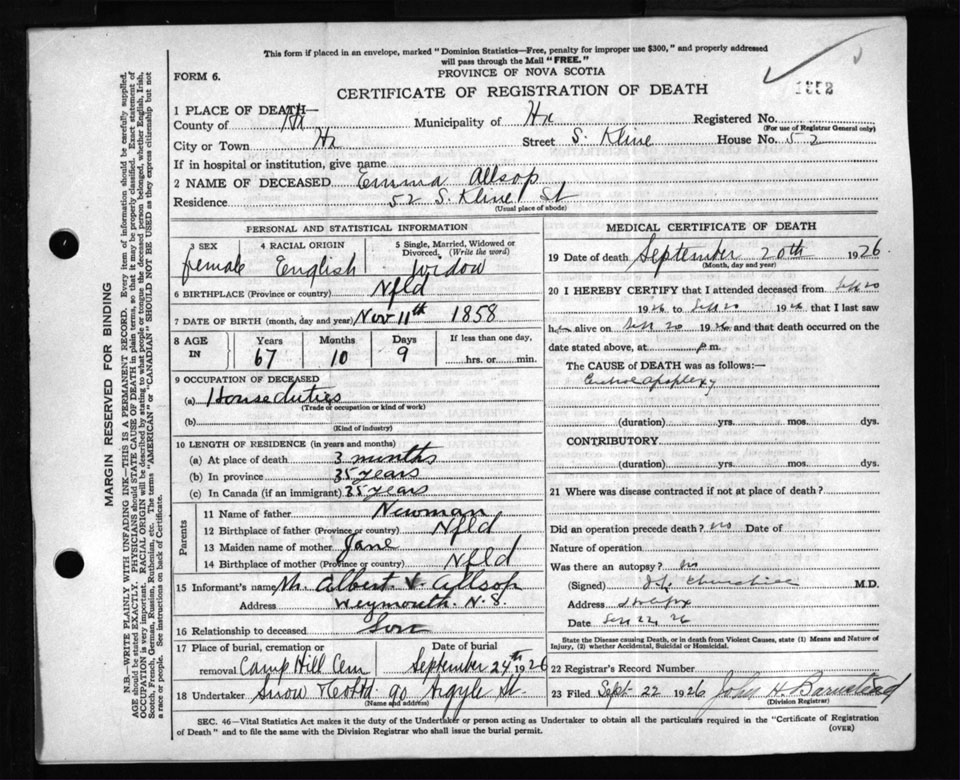 This form if placed in an envelope, marked "Dominion Statistics—Free, penalty for improper use $300," and properly addressed
will pass through the Mail "FREE."
FORM 6.
PROVINCE OF NOVA SCOTIA
CERTIFICATE OF REGISTRATION OF DEATH
1 PLACE OF DEATH—
County of Hx Municipality of Hx Registered No.
(For use of Registrar General only)
City or Town Hx Street S. Kline House No. 52
If in hospital or institution, give name
2 NAME OF DECEASED Emma Allsop
Residence 52 S. Kline St
(Usual place of abode)
PERSONAL AND STATISTICAL INFORMATION
3 SEX 4 RACIAL ORIGIN 5 Single, Married, Widowed or Divorced. (Write the word)
female English Widow
6 BIRTHPLACE (Province or country) Nfld
7 DATE OF BIRTH (month, day and year) Nov 11th 1858
8 AGE IN Years Months Days If less than one day,
67 10 9 hrs. or min.
9 OCCUPATION OF DECEASED
(a) House duties
(Trade or occupation or kind of work)
(b)
(Kind of industry)
10 LENGTH OF RESIDENCE (in years and months)
(a) At place of death 3 months
(b) In province 35 years
(c) In Canada (if an immigrant) 35 years
Parents
11 Name of father Newman
12 Birthplace of father (Province or country) Nfld
13 Maiden name of mother Jane
14 Birthplace of mother (Province or country) Nfld
15 Informant's name Mr. Albert V. Allsop
Address Weymouth. N. S.
16 Relationship to deceased Son
17 Place of burial, cremation or removal Camp Hill Cem Date of burial September 24th 1926
18 Undertaker Snow & Co Ltd. 90 Argyle St.
(Name and address)
MEDICAL CERTIFICATE OF DEATH
19 Date of death September 20th 1926
(Month, day and year)
20 I HEREBY CERTIFY that I attended deceased from Sept 20
1926 to Sept 20 1926 that I last saw
her alive on Sept 20 1926 and that death occurred on
date stated above, at p.m.
The CAUSE OF DEATH was as follows:—
apoplexy
(duration) yrs. mos. dys.
CONTRIBUTORY
(duration) yrs. mos. dys.
21 Where was disease contracted if not at place of death?
Did an operation precede death? no Date of
Nature of operation
Was there an autopsy? no
(Signed) M.D.
Address Halifax
Date Sept 22, 26
State the Disease causing Death, or in death from Violent Causes, state (1) Means and Nature of
Injury, (2) whether Accidental, Suicidal or Homicidal.
22 Registrar's Record Number
23 Filed Sept 22 1926 John H. Barnstead
(Division Registrar)
SEC. 46—Vital Statistics Act makes it the duty of the Undertaker or person acting as Undertaker to obtain all the particulars required in the "Certificate of Registration
of Death" and to file the same with the Division Registrar who shall issue the burial permit.
(OVER)
MARGIN RESERVED FOR BINDING
N.B.—WRITE PLAINLY WITH UNFADING INK—THIS IS A PERMANENT RECORD. Every item of information should be carefully supplied.
AGE should be stated EXACTLY. PHYSICIANS should STATE CAUSE OF DEATH in plain terms, so that it may be properly classified. Exact statement of
OCCUPATION is very important. RACIAL ORIGIN will be described by stating to what people or tongue the deceased person belonged, whether English, Irish,
Scotch, French, German, Russian, Ruthenian, etc. The terms "AMERICAN" or "CANADIAN" SHOULD NOT BE USED as they express citizenship but not
a race or people. See instructions on back of Certificate.